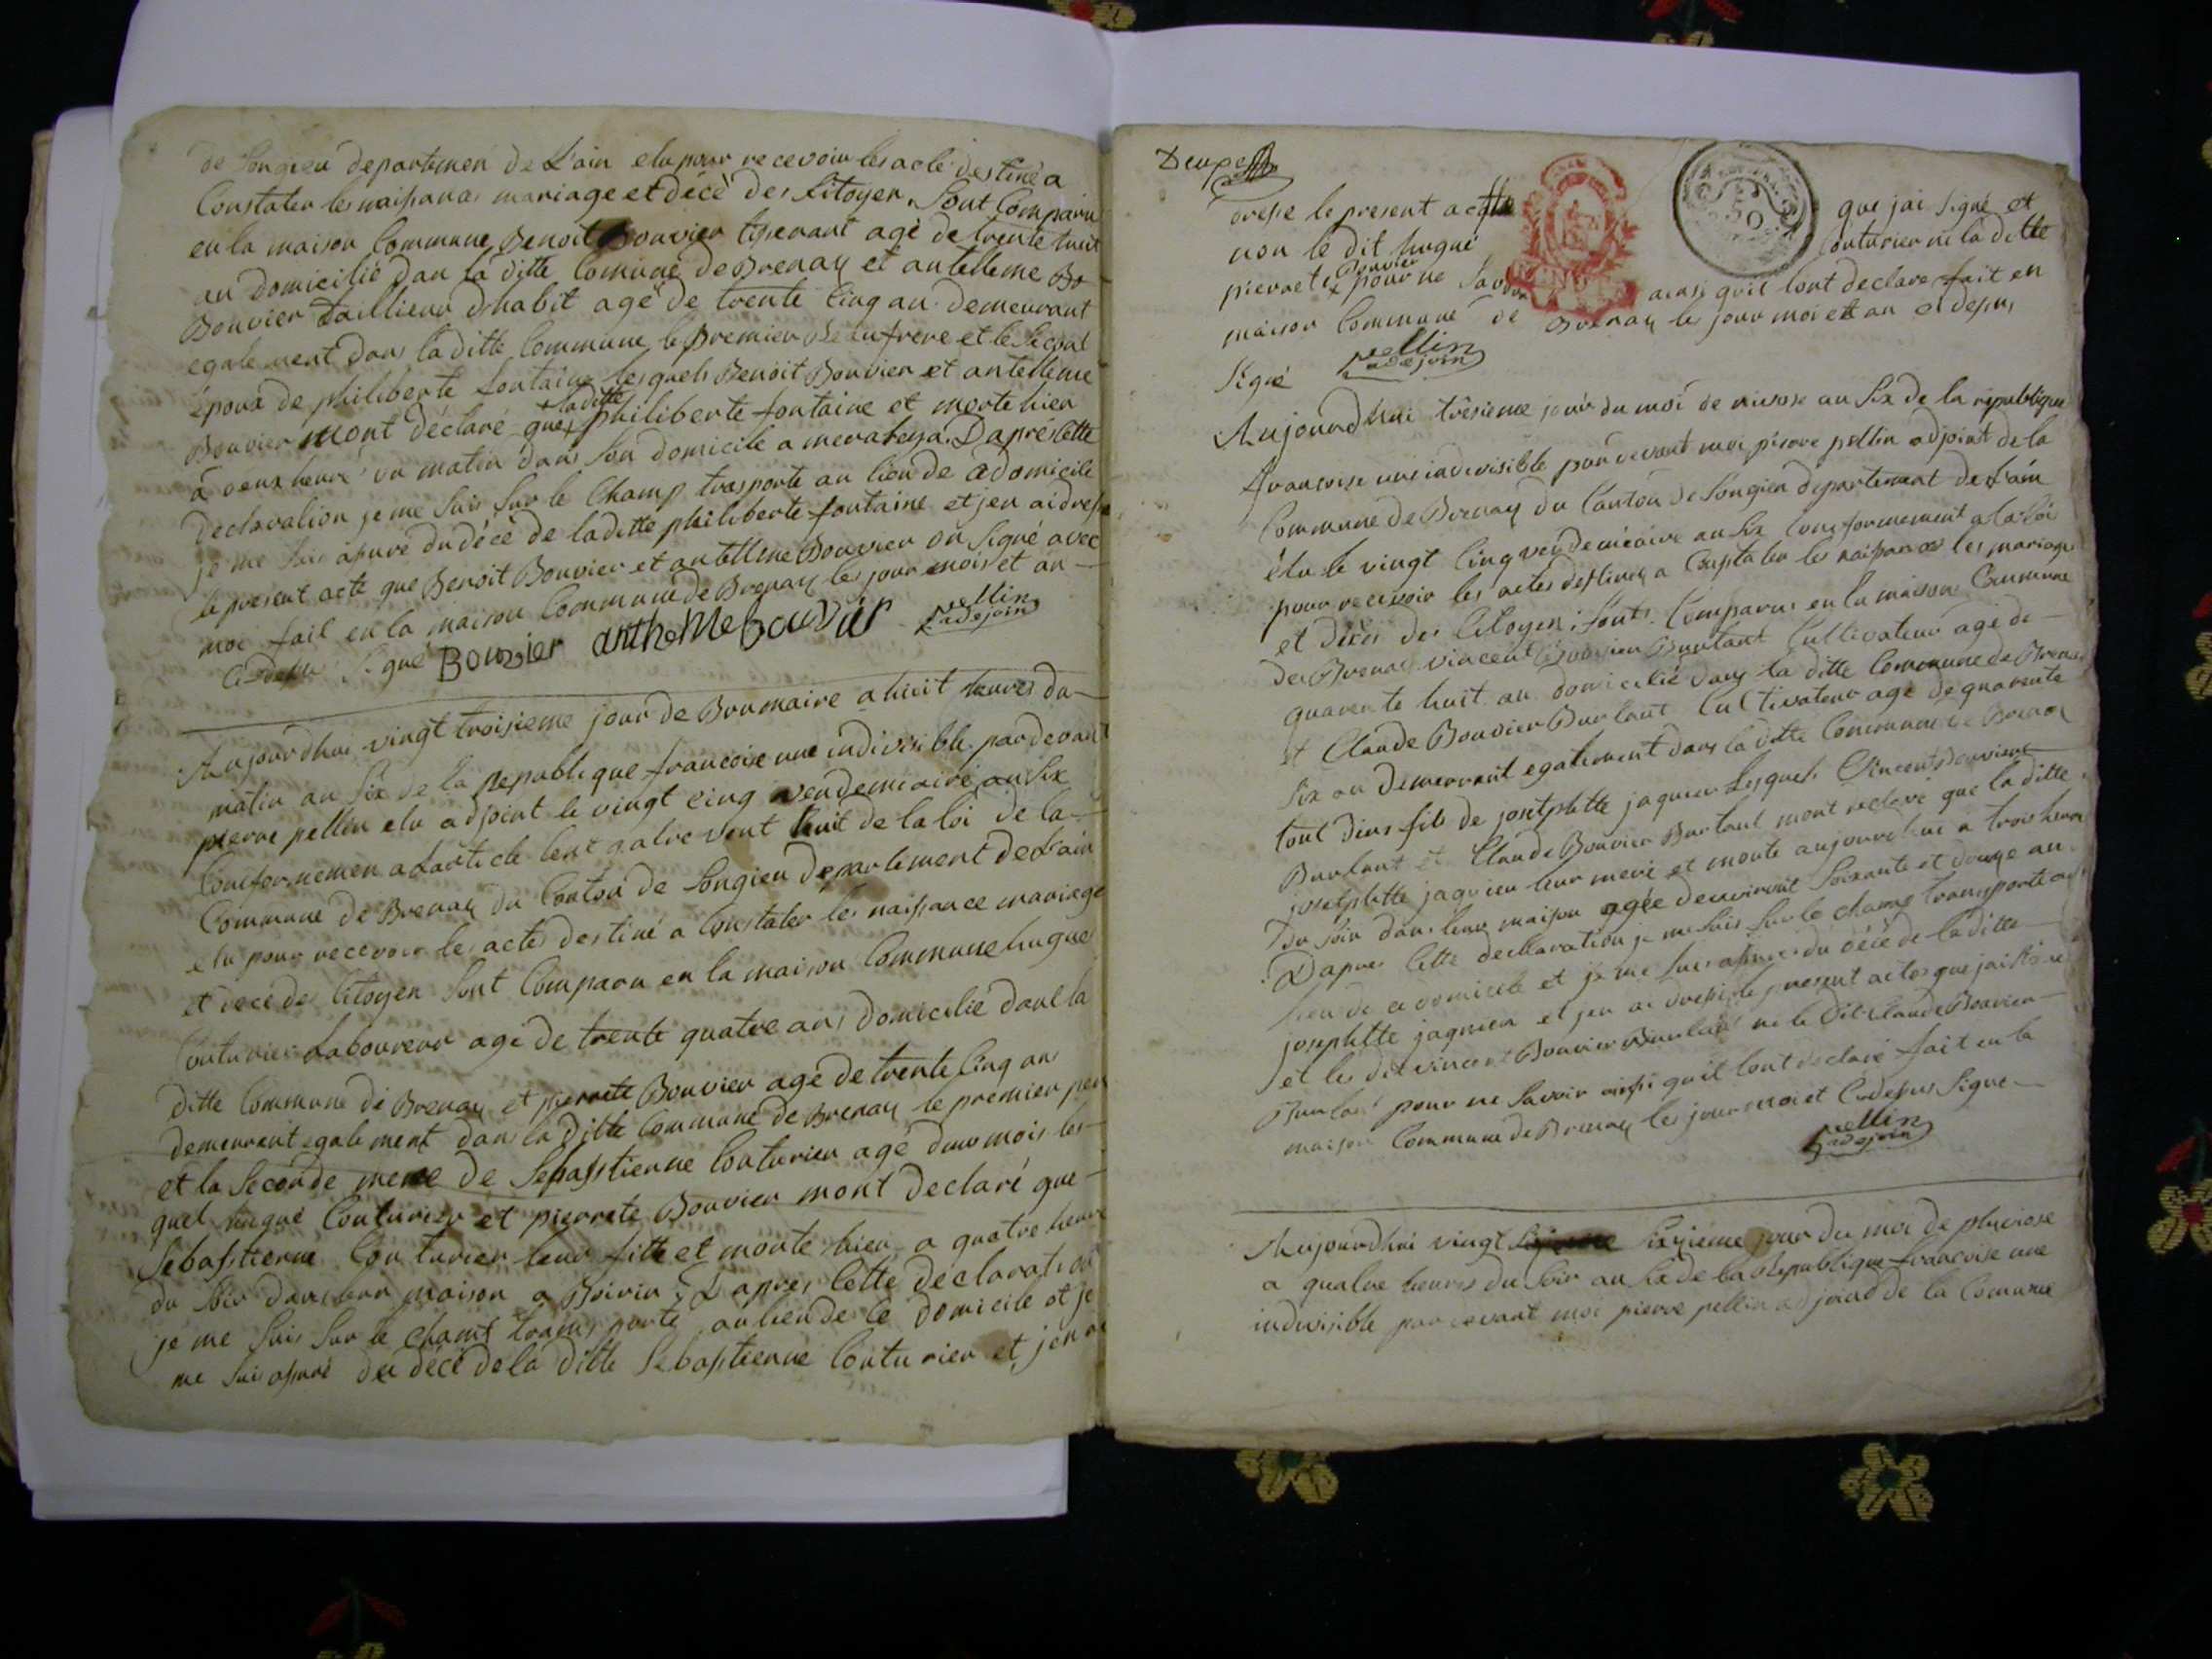 de Songieu departemen de L'ain elu pour recevoir les acte destiné a
Constater les naissances mariage et décè des Citoyen, Sont Comparu
en la maison Commune Benoit Bouvier tiserant agé de trente huit
an domicilié dan la ditte Comune de Brenay et antelleme Bo
Bouvier Taillieur dhabit agé de trente Cinq an demeurant
egalement dans la ditte Commune le Premier Beaufrere et le Segont
époux de philiberte fontaine lesquels Benoit Bouvier et antelleme
Bouvier mont déclaré que la ditte philiberte fontaine et morte hier
à deux heure du matin dans Son domicile a Daprés Cette
Declaration je me Suis Sur le Champ trasporte au lieu de domicile
je me suis asuré du décè de laditte philiberte fontaine et jen ai dresse
le present acte que Benoit Bouvier et antelleme Bouvier on Signé avec
moi fait en la maison Commune de Brenay les jour mois et an
Ci desu Signé Bouvier anthelme bouvier pellin adjoin
Aujourdhui vingt troisieme jour de Brumaire a huit heures du
matin an Six de la Republique francoise une indivisible pardevant
pierre pellin elu adjoint le vingt cinq vendemiaire an Six
Conformemen a Larticle Cent vent huit de la loi de la
Commune de Brenay du Canton de Songieu Departement de L'ain
elu pour recevoir les actes destiné a Constater les naissance mariage
et decé des Citoyen Sont Comparu en la maison Commune hugue
Couturier Laboureur agé de trente quatre ans domicilié dant la
ditte Commune de Brenay et pierrette Bouvier age de trente Cinq ans
demeurent egalement dans la Ditte Commune de Brenay le premier per
et la Seconde mere de Sebastienne Couturier agé dun mois les
quel hugue Couturier et pierrete Bouvier mont declaré que
Sebastienne Couturier leur fille et morte hier a quatre heure
du Soir dans leur maison a Boirin, Daprés Cette déclaration
je me Suis Sur le Champ transporté au lieu de Ce domicile et je
me Suis assuré du décé de la ditte Sebastienne Couturier et jen ai
dresse le present acte que jai Signé et
non le dit hugue Couturier ni la ditte
pierrete Bouvier pour ne Savoir ainsi quil lont declare fait en
maison Commune de Brenay les jour moi et an Ci desus
Signé pellin adejoin
50
Aujourdhui trêsieme jour du moi de nivose an Six de la republique
francoise une indivisible par devant moi pierre pellin adjoint de la
Commune de Brenay du Canton de Songieu departement de L'ain
élu le vingt Cinq vendemiaire an Six Conformement a la loi
pour recevoir les actes destinés a Constater les naissances les mariage
et décés des Citoyen; Sont Comparus en la maison Commune
de Brenay vincent Bouvier Burlant Cultivateur agé de
quarente huit an domicilié dans la ditte Commune de Brenay
et Claude Bouvier Burlant Cultivateur agé de quarente
Six an demeurant egalement dans la ditte Commune de Brenay
tout deux fils de josetphette jaquier Lesquels Vincent Bouvier
Burlant et Claude Bouvier Burlant mont declaré que la ditte
josetphette jaquier leur mere et morte aujourdhui a trois heure
du Soir dans leur maison agée denviront Soixante et douze an
Daprés Cette declaration je me Suis Sur le champ transporte au
lieu de ce domicile et je me Suis assuré du décé de la ditte
josephette jaquier et jen ai dressé le present acte que jai Signé
et le dit vincent Bouvier Burlant ni le Dit Claude Bouvier
Burlant pour ne Savoir ainsi quil lont declaré fait en la
maison Commune de Brenay les jour moi et Ci desus Signe
pellin adejoin
Aujourdhui vingt Sixieme jour du moi de pluviose
a quatre heures du Soir an Six de la Republique francoise une
indivisible par devant moi pierre pellin adjoind de la Commune